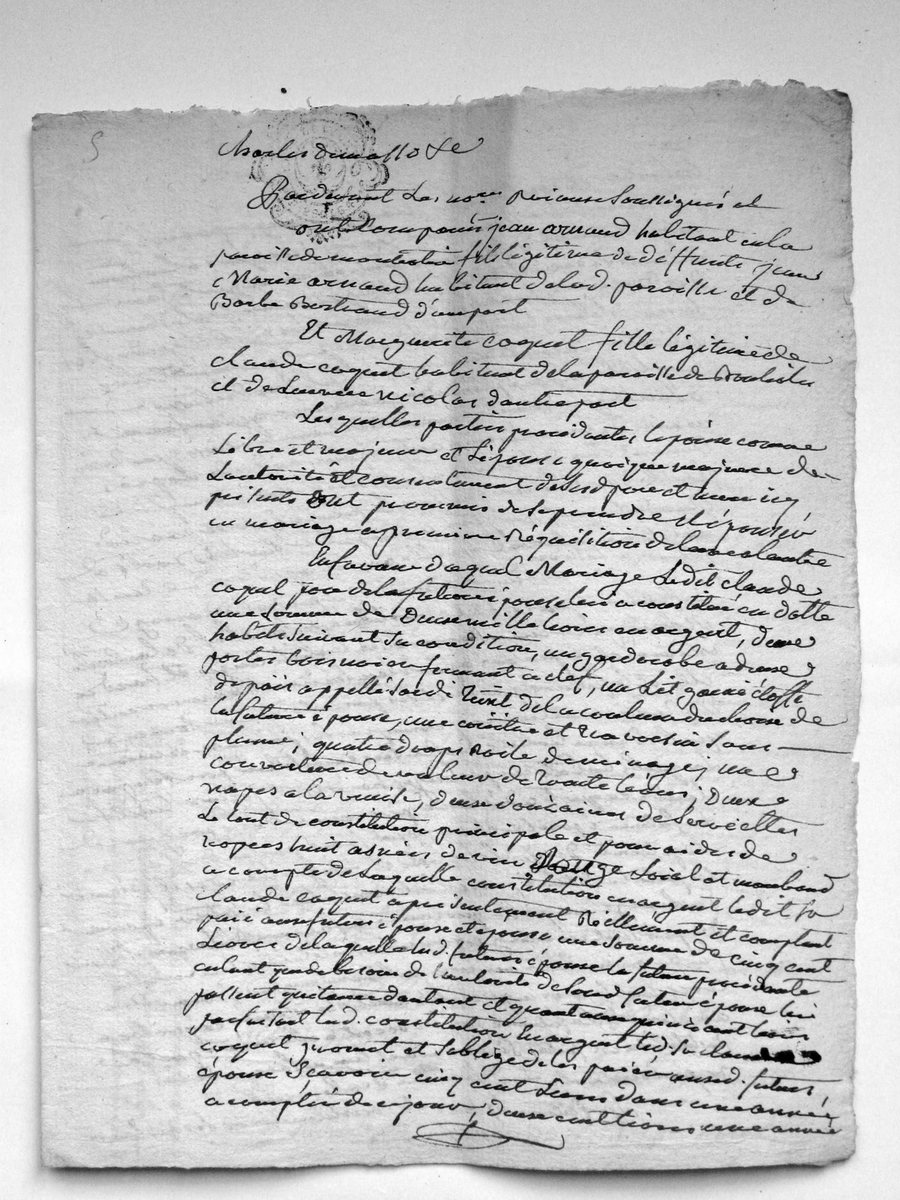 5
Charles
Pardevant Les no.res soussignés et
ont Comparu jean armand habitant en la
paroisse de fils légitime de déffunts jean
Marie armand habitant de lad. paroisse et de
Barbe Bertrand d'unepart
Et Marguerite coquet fille légitime de
claude coquet habitant de la paroisse de
et de nicolas dautrepart
Lesquelles parties procédantes, lepoux comme
Libre et majeur et Lépouse quoique majeure de
Lautorité et consentement desesd. pere et mere icy
présents ont promis de se prendre et épouser
en mariage a premiere Réquisition delun a lautre
En faveur duquel Mariage Ledit claude
coquet pere dela future épouse luy a constitué en dotte
une somme de Deux mille livres en argent, deux
habits suivant sa condition, un garderobe a deux
portes bois noir fermant a clef, un Lit garni
appellé de la couleur du choix de
la future épouse, une coëttre et traversin
plume, quatre draps toile de menage, une
couverture de valeur de trente livres, Deux
napes a la venise, deux douzaines de serviettes
Le tout de constitution principale et pour aides de
nopces huit asnées de vin Rouge Loial et marchand
a compte de laquelle constitution en argent ledit sr
claude coquet a présentement Réellement et comptant
paié aux futurs épouse et époux une somme de cinq cent
Livres de laquelle lesd. futurs époux la future procédante
entant que de besoin de l'autorité de sond. futur époux lui
passent quittance dautant et quant aux quinze cent livres
restant lad. constitution En argent led. Sr claude
coquet promet et soblige de les paier ausd. futurs
épouse Scavoir cinq cent Livres dans une année
a compter de ce jour, deux cent livres une année